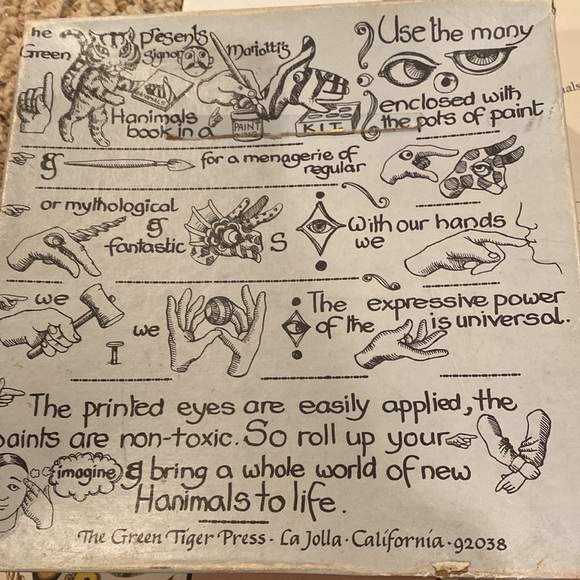 he presents Signor Mariotti's
Green
Hanimals
book in a PAINT KIT
Use the many
enclosed with
the pots of paint
& for a menagerie of
regular
or mythological
&
fantastic S
With our hands
we
we
we
The expressive power
of the is universal.
The printed eyes are easily applied, the
paints are non-toxic. So roll up your
imagine & bring a whole world of new
Hanimals to life.
The Green Tiger Press · La Jolla · California · 92038